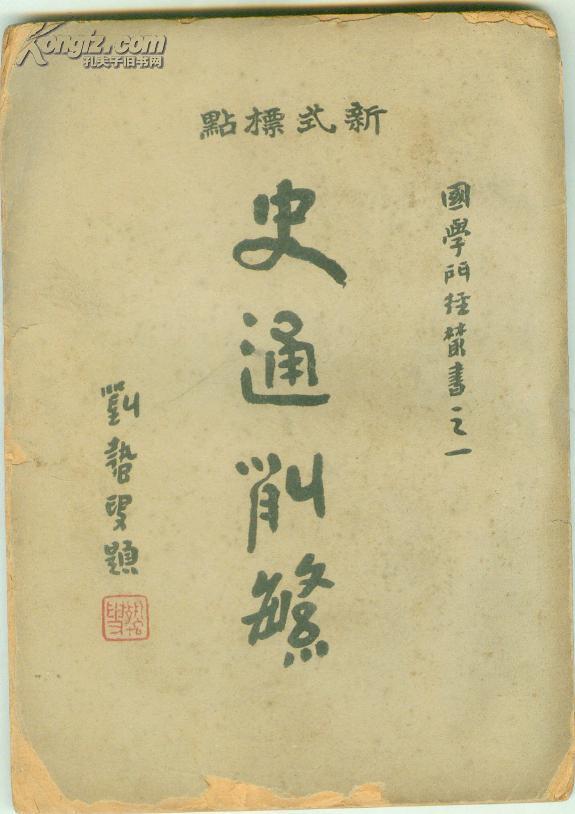 Kongfz.com
孔夫子旧书网
新式標點
國學門徑叢書之一
史通削繁
劉蟄叟題